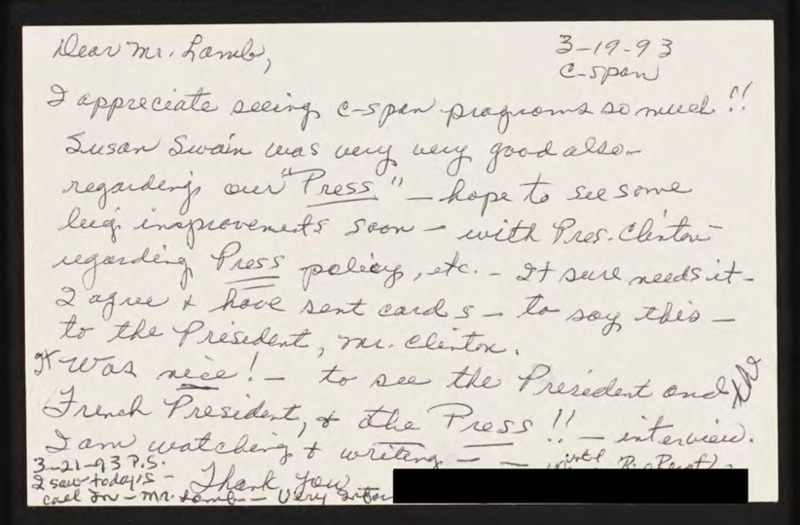 Dear Mr. Lamb,
3-19-93
C-span
I appreciate seeing c-span programs so much!!
Susan Swain was very very good also -
regarding our "Press" - hope to see some
big improvements soon - with Pres. Clinton -
regarding Press policy, etc. - It sure needs it -
I agree & have sent cards - to say this -
to the President, Mr. Clinton.
It was nice! - to see the President and the
French President, & the Press!! - interview.
I am watching & writing - -
3-21-93 P.S.
I saw today's -
call In - Mr. Lamb - Very
Thank You